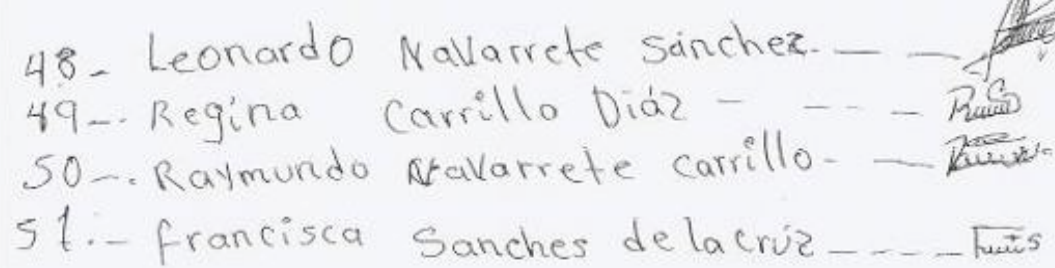 48- Leonardo Navarrete Sánchez. — —
49-. Regina Carrillo Diáz - - - -
50-. Raymundo Navarrete carrillo- —
51.- francisca Sanches de la cruz - - - -